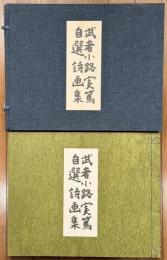 武者小路実篤
自選詩画集
武者小路実篤
自選詩画集